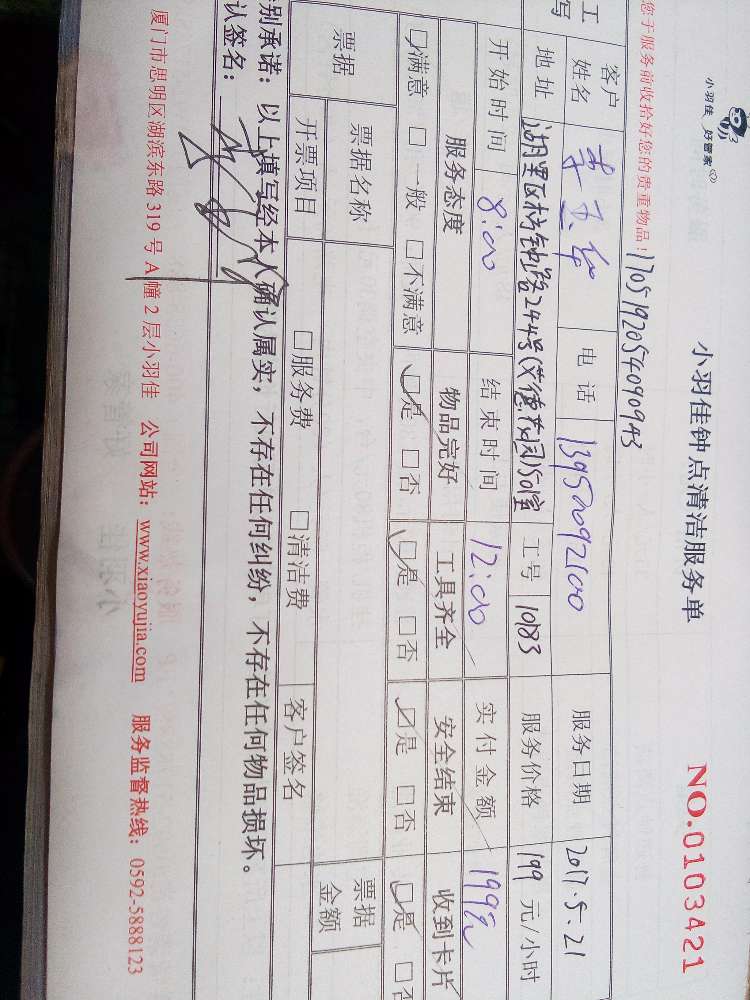 小羽佳 好管家
小羽佳钟点清洁服务单
NO.0103421
您于服务前收拾好您的贵重物品！
1705192054090943
工
写
客户
姓名
电话
13950092100
服务日期
2017.5.21
地址
湖里区枋钟路244号
150室
工号
10183
服务价格
199 元/小时
开始时间
8:00
结束时间
12:00
实付金额
199元
服务态度
物品完好
工具齐全
安全结束
收到卡片
☑满意 □一般 □不满意
☑是 □否
☑是 □否
☑是 □否
☑是 □否
票据
票据名称
票据
金额
开票项目
□服务费
□清洁费
客户签名
别承诺：以上填写经本人确认属实，不存在任何纠纷，不存在任何物品损坏。
认签名：
厦门市思明区湖滨东路 319 号 A 幢 2 层小羽佳 公司网站：www.xiaoyujia.com 服务监督热线：0592-5888123